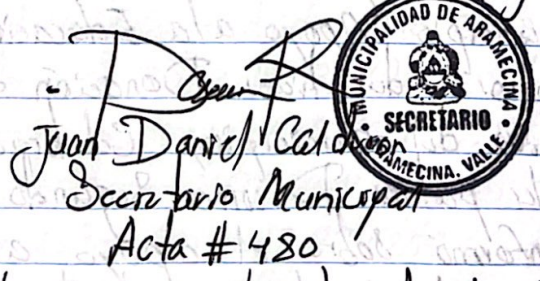 MUNICIPALIDAD DE ARAMECINA
SECRETARIO
ARAMECINA, VALLE
Juan Daniel Calderon
Secretario Municipal
Acta # 480